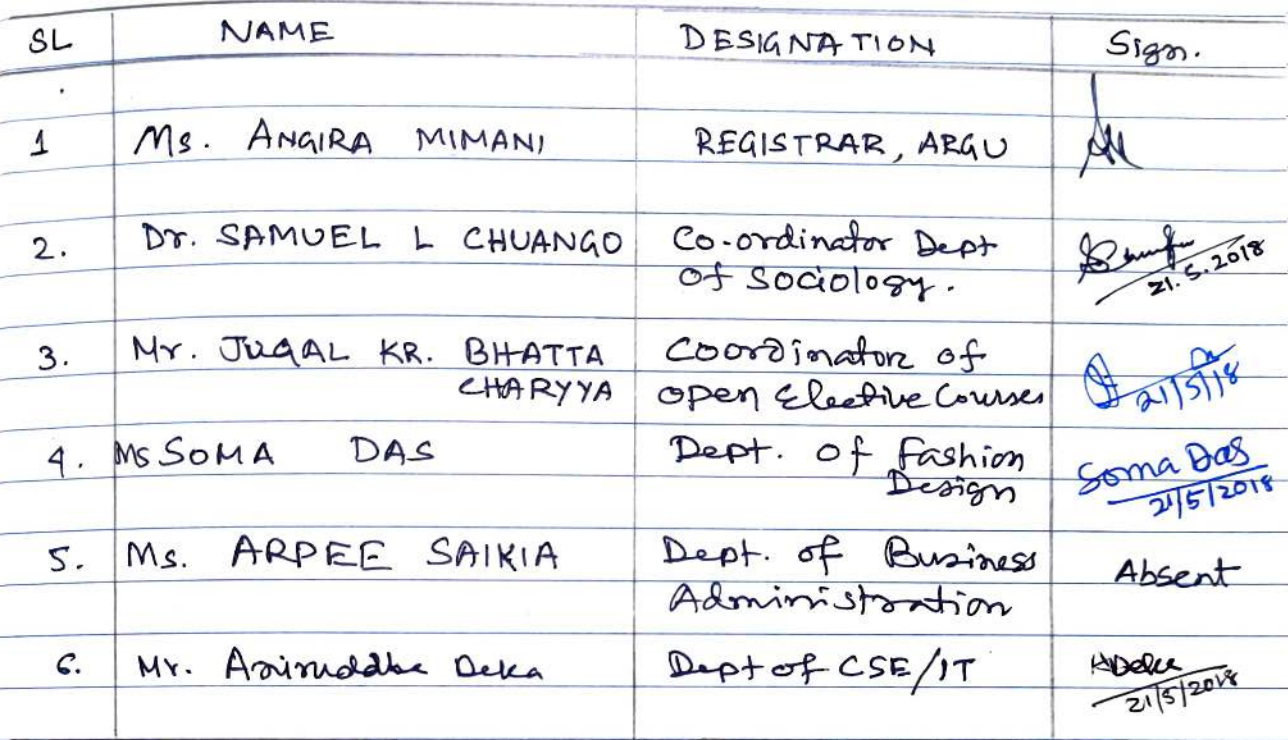 SL NAME DESIGNATION Sign.
1 Ms. ANGIRA MIMANI REGISTRAR, ARGU
2. Dr. SAMUEL L CHUANGO Co-ordinator Dept 
of Sociology. 21.5.2018
3. Mr. JUGAL KR. BHATTA Coordinator of
CHARYYA Open Elective Courses 21/5/18
4. Ms SOMA DAS Dept. of Fashion Soma Das
Design 21/5/2018
5. Ms. ARPEE SAIKIA Dept. of Business Absent
Administration
6. Mr. Aniruddha Deka Dept of CSE/IT ADeka
21/5/2018